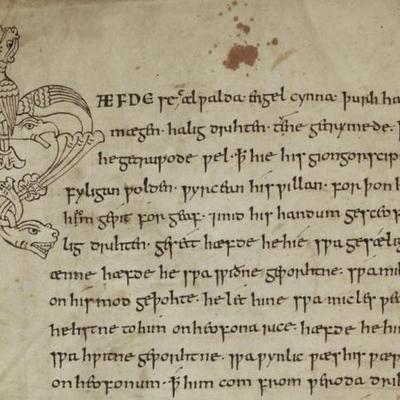 HÆFDE se alƿalda engel cynna þurh ha
mægen· halig drihten· tene getrymede·
he getruƿode ƿel· ꝥ hie his giongorscip
fyligan ƿolden· ƿyrcean his ƿillan· for þon h
him geƿit for geaf· ⁊ mid his handum gesceop
lig drihten· gesett hæfde he hie sƿa gesælig
ænne hæfde he sƿa sƿiðne geƿorhtne· sƿa mih
on his mod geþohte· he let hine sƿa micles ƿea
hehstne to him on heofona rice· hæfde he hi
sƿa hƿitne geƿorhtne· sƿa ƿynlic ƿæs his ƿæs
on heofonum· ꝥ him com from ƿeroda dri